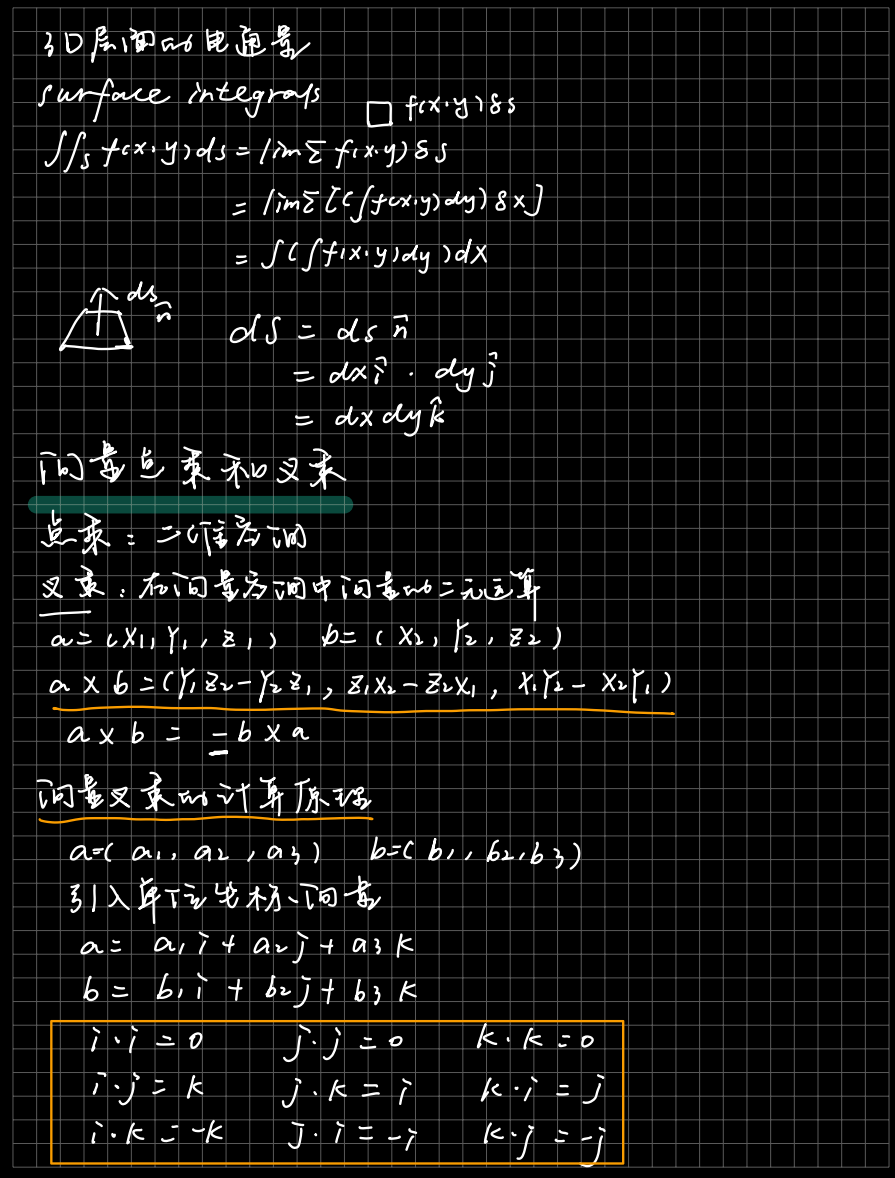 3D层面的电通量
surface integrals
□ f(x·y)δs
∫∫s f(x·y)ds = lim Σ f(x·y) δs
= lim Σ [(∫f(x·y)dy) δx]
= ∫(∫f(x·y)dy)dx
ds n̂
dS = ds n̂
= dx î · dy ĵ
= dx dy k̂
向量点乘和叉乘
点乘:二维空间
叉乘:在向量空间中向量的二元运算
a = (x1, y1, z1) b = (x2, y2, z2)
a × b = (y1z2 - y2z1, z1x2 - z2x1, x1y2 - x2y1)
a × b = - b × a
向量叉乘的计算原理
a=(a1, a2, a3) b=(b1, b2, b3)
引入单位坐标向量
a = a1 i + a2 j + a3 k
b = b1 i + b2 j + b3 k
i · i = 0 j · j = 0 k · k = 0
i · j = k j · k = i k · i = j
i · k = -k j · i = -i k · j = -j